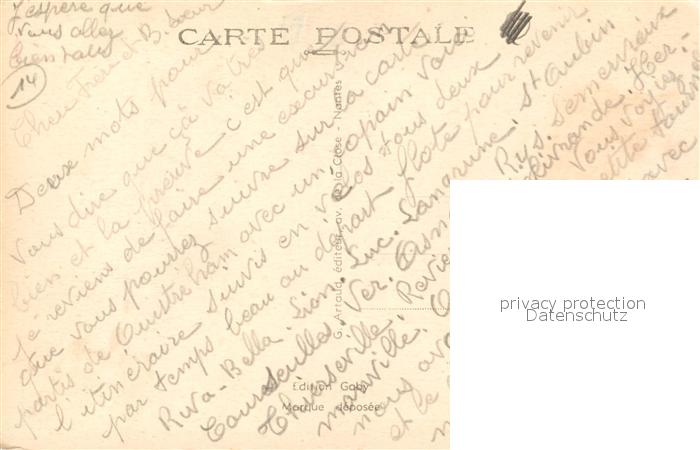 J'espère que
vous allez
bien tous
14
CARTE POSTALE
Cher Frère et B. Sœur
Deux mots pour
vous dire que ça va très
bien et la preuve c'est que
je reviens de faire une excursion
que vous pourrez suivre sur la carte
partis de Ouistreham avec un copain voici
l'itinéraire suivis en vélos tous deux
par temps beau au départ flote pour revenir
Riva-Bella. Lion. Luc. Langrune. St Aubin
Courseulles. Ver. Asn Rys. Semervieux
Revie
manville.
nous av Vous voyez
et le petite tour
avec
G. Artaud, éditeur, av. de la Close - Nantes
Edition Gaby
Marque déposée
privacy protection
Datenschutz